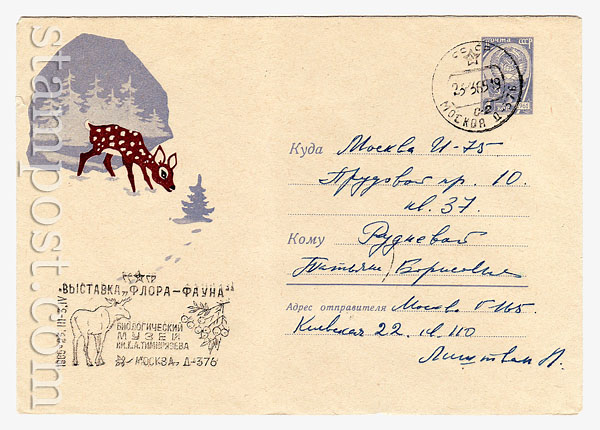 stamp-post.com
ПОЧТА СССР
СССР
23 3 65 19
МОСКВА Д-376
Куда Москва И-75
Прудовой пр. 10.
кв. 37.
Кому Рудневой
Татьяне Борисовне
Адрес отправителя Москва Г-165.
Киевская 22. кв. 110
ВЫСТАВКА „ФЛОРА-ФАУНА"
БИОЛОГИЧЕСКИЙ
МУЗЕЙ
ИМ. К.А. ТИМИРЯЗЕВА
МОСКВА, Д-376